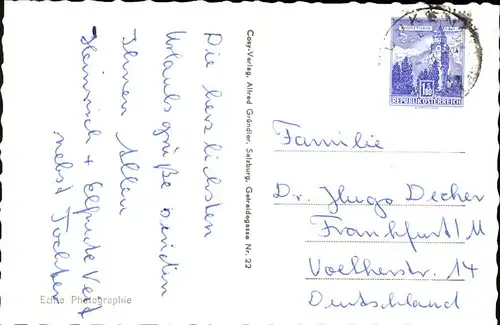 Die herzlichsten
Urlaubsgrüße senden
Ihnen Allen
Heinrich + Elfriede
nebst Tochter
Echte Photographie
Cosy-Verlag, Alfred Gründler, Salzburg, Getreidegasse Nr. 22
1.80
REPUBLIK ÖSTERREICH
Familie
Dr. Hugo Decher
Frankfurt/M
Voelkerstr. 14
Deutschland